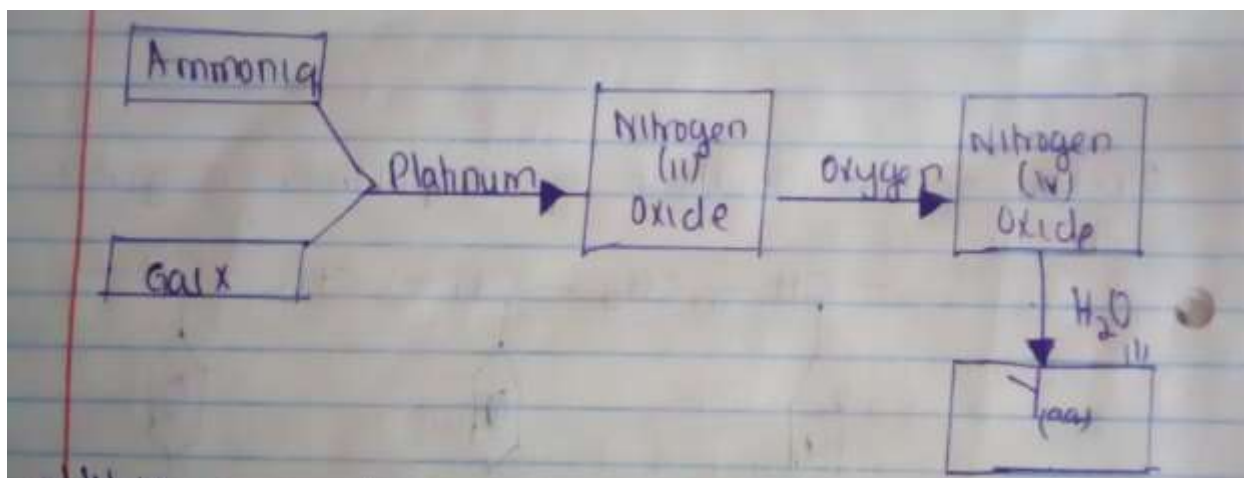 Ammonia
Platinum
Nitrogen
(II)
Oxide
Oxygen
Nitrogen
(IV)
Oxide
Gas X
H₂O
Y(aq)